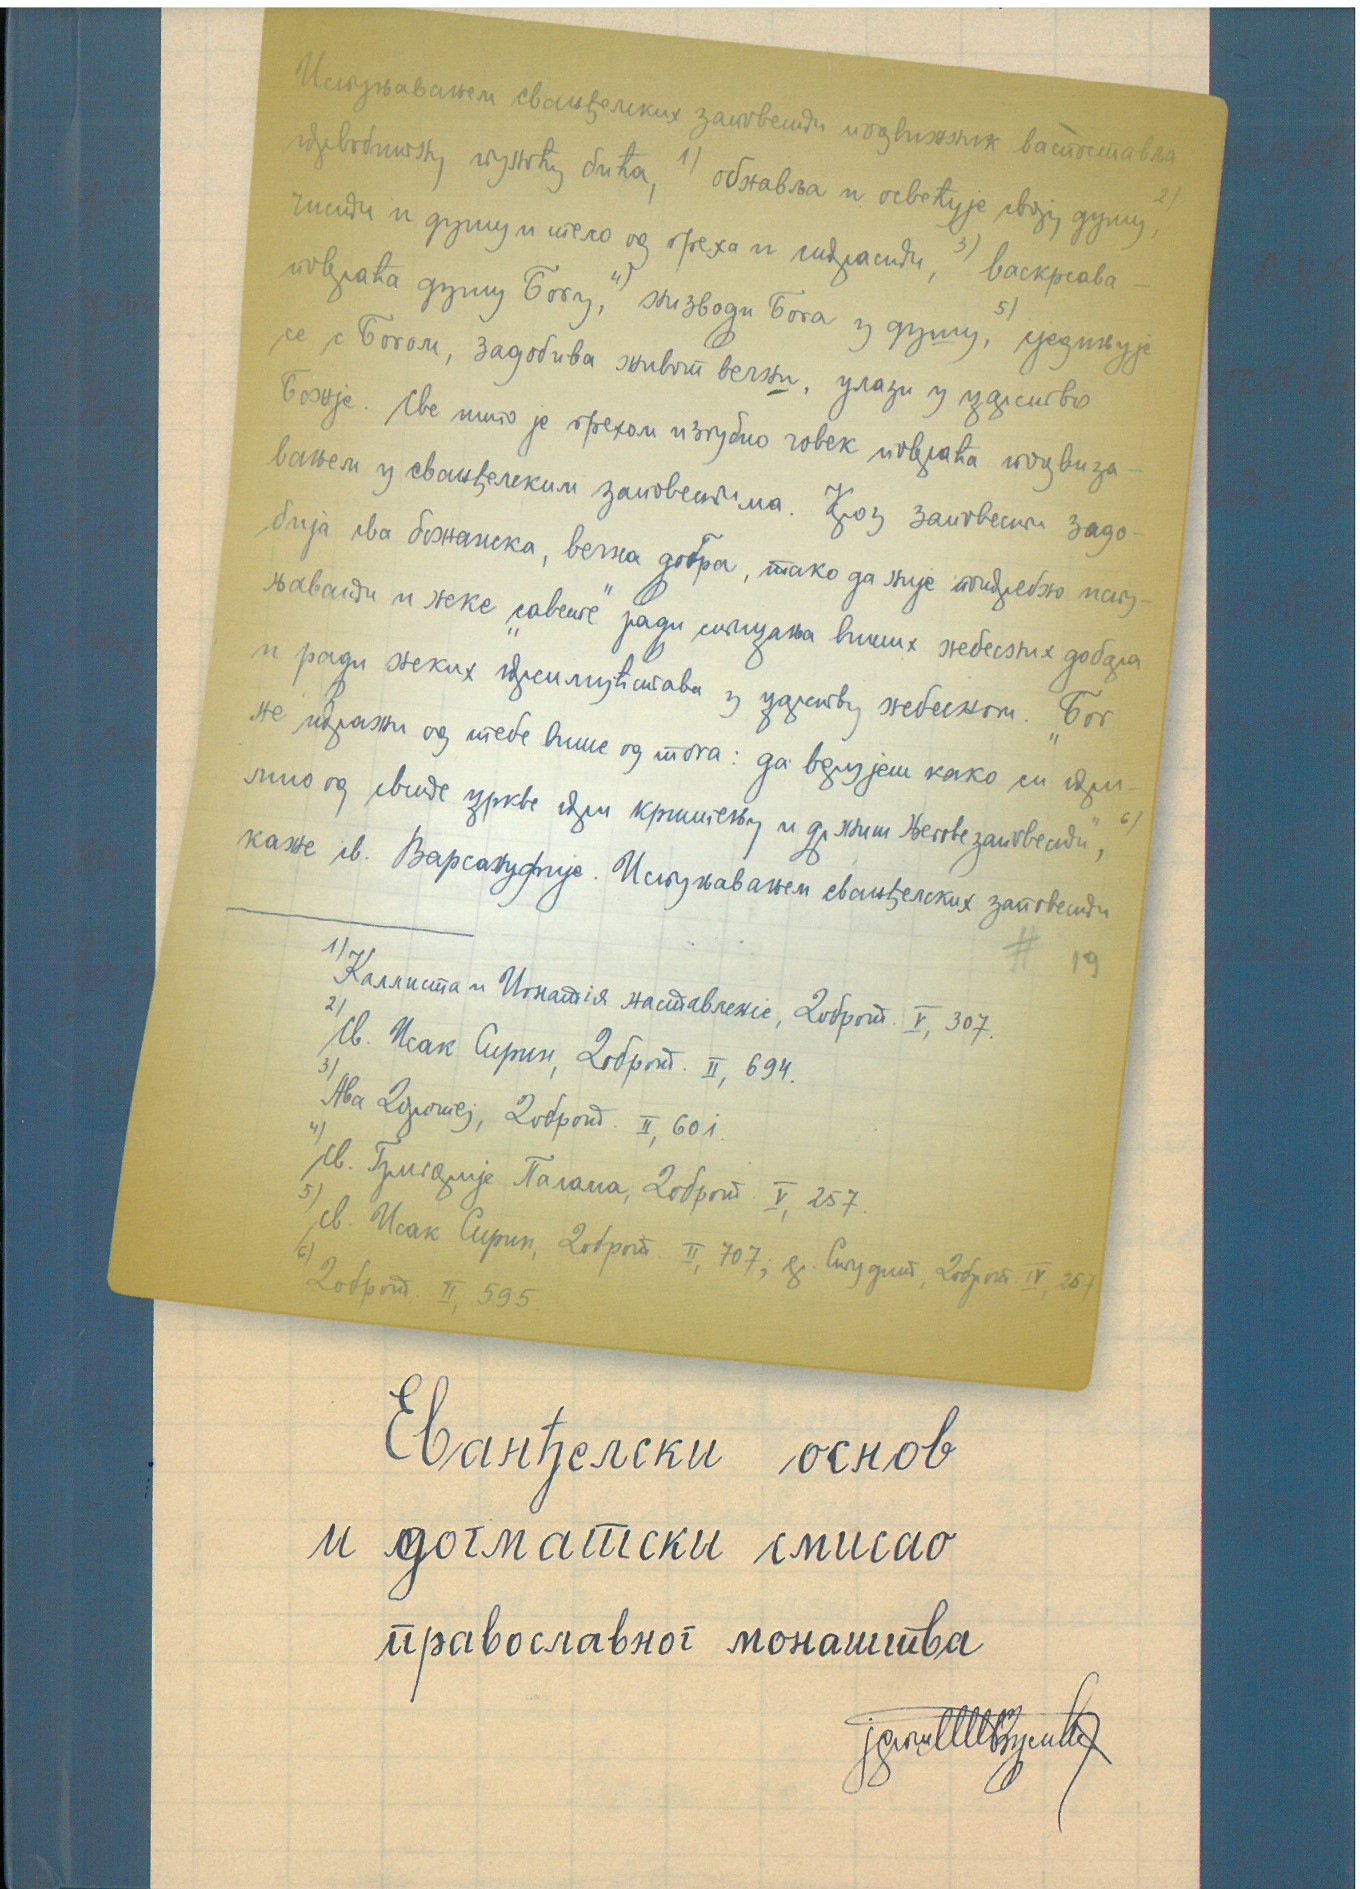 Испуњавањем еванђелских заповести подвижник васпоставља
првобитну пуноћу бића,¹⁾ обнавља и освећује своју душу,²⁾
чисти и душу и тело од греха и страсти,³⁾ васкрсава –
повраћа душу Богу,⁴⁾ низводи Бога у душу,⁵⁾ сједињује
се с Богом, задобива живот вечни, улази у царство
Божје. Све што је грехом изгубио човек повраћа подвиза-
вањем у еванђелским заповестима. Кроз заповести задо-
бија сва божанска, вечна добра, тако да није потребно испу-
њавати и неке „савете" ради стицања виших небесних добара
и ради неких преимућстава у царству небесном. „Бог
не тражи од тебе више од тога: да верујеш како си при-
мио од свете цркве при крштењу и држиш Његове заповести",⁶⁾
каже св. Варсануфије. Испуњавањем еванђелских заповести
# 19
1) Каллиста и Игнатія наставленіе, Доброт. V, 307.
2) Св. Исак Сирин, Доброт. II, 694.
3) Ава Доротеј, Доброт. II, 601.
4) Св. Григорије Палама, Доброт. V, 257.
5) Св. Исак Сирин, Доброт. II, 707; ср. Студит, Доброт. IV, 257
6) Доброт. II, 595.
Еванђелски основ
и догматски смисао
православног монаштва